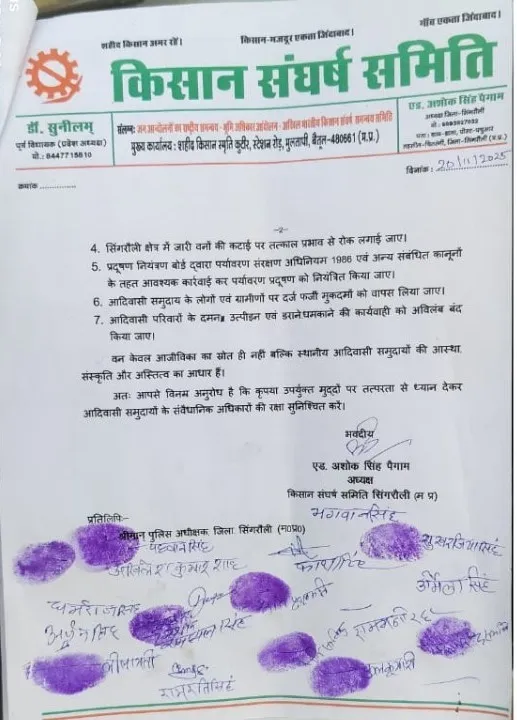 शहीद किसान अमर रहें।
किसान-मजदूर एकता जिंदाबाद।
गाँव एकता जिंदाबाद।
किसान संघर्ष समिति
डॉ. सुनीलम्
पूर्व विधायक (प्रदेश अध्यक्ष)
मो.: 8447715810
संलग्न: जन आन्दोलनों का राष्ट्रीय समन्वय - भूमि अधिकार आंदोलन - अखिल भारतीय किसान संघर्ष समन्वय समिति
मुख्य कार्यालय: शहीद किसान स्मृति कुटीर, स्टेशन रोड, मुलतापी, बैतूल-480661 (म.प्र.)
एड. अशोक सिंह पैगाम
अध्यक्ष जिला-सिंगरौली
क्रमांक ..............
दिनांक : 20/11/2025
-2-
4. सिंगरौली क्षेत्र में जारी वनों की कटाई पर तत्काल प्रभाव से रोक लगाई जाए।
5. प्रदूषण नियंत्रण बोर्ड द्वारा पर्यावरण संरक्षण अधिनियम 1986 एवं अन्य संबंधित कानूनों
के तहत आवश्यक कार्रवाई कर पर्यावरण प्रदूषण को नियंत्रित किया जाए।
6. आदिवासी समुदाय के लोगों एवं ग्रामीणों पर दर्ज फर्जी मुकदमों को वापस लिया जाए।
7. आदिवासी परिवारों के दमन, उत्पीड़न एवं डराने धमकाने की कार्यवाही को अविलंब बंद
किया जाए।
वन केवल आजीविका का स्रोत ही नहीं बल्कि स्थानीय आदिवासी समुदायों की आस्था,
संस्कृति और अस्तित्व का आधार हैं।
अतः आपसे विनम्र अनुरोध है कि कृपया उपर्युक्त मुद्दों पर तत्परता से ध्यान देकर
आदिवासी समुदायों के संवैधानिक अधिकारों की रक्षा सुनिश्चित करें।
भवदीय
एड. अशोक सिंह पैगाम
अध्यक्ष
किसान संघर्ष समिति सिंगरौली (म प्र)
भगवानसिंह
प्रतिलिपि:-
श्रीमान पुलिस अधीक्षक, जिला सिंगरौली (म0प्र0)
अखिलेश कुमार शाह
उर्मिला सिंह
धर्मराजसिंह
अर्जुन सिंह
लीलावती
रामरतिसिंह